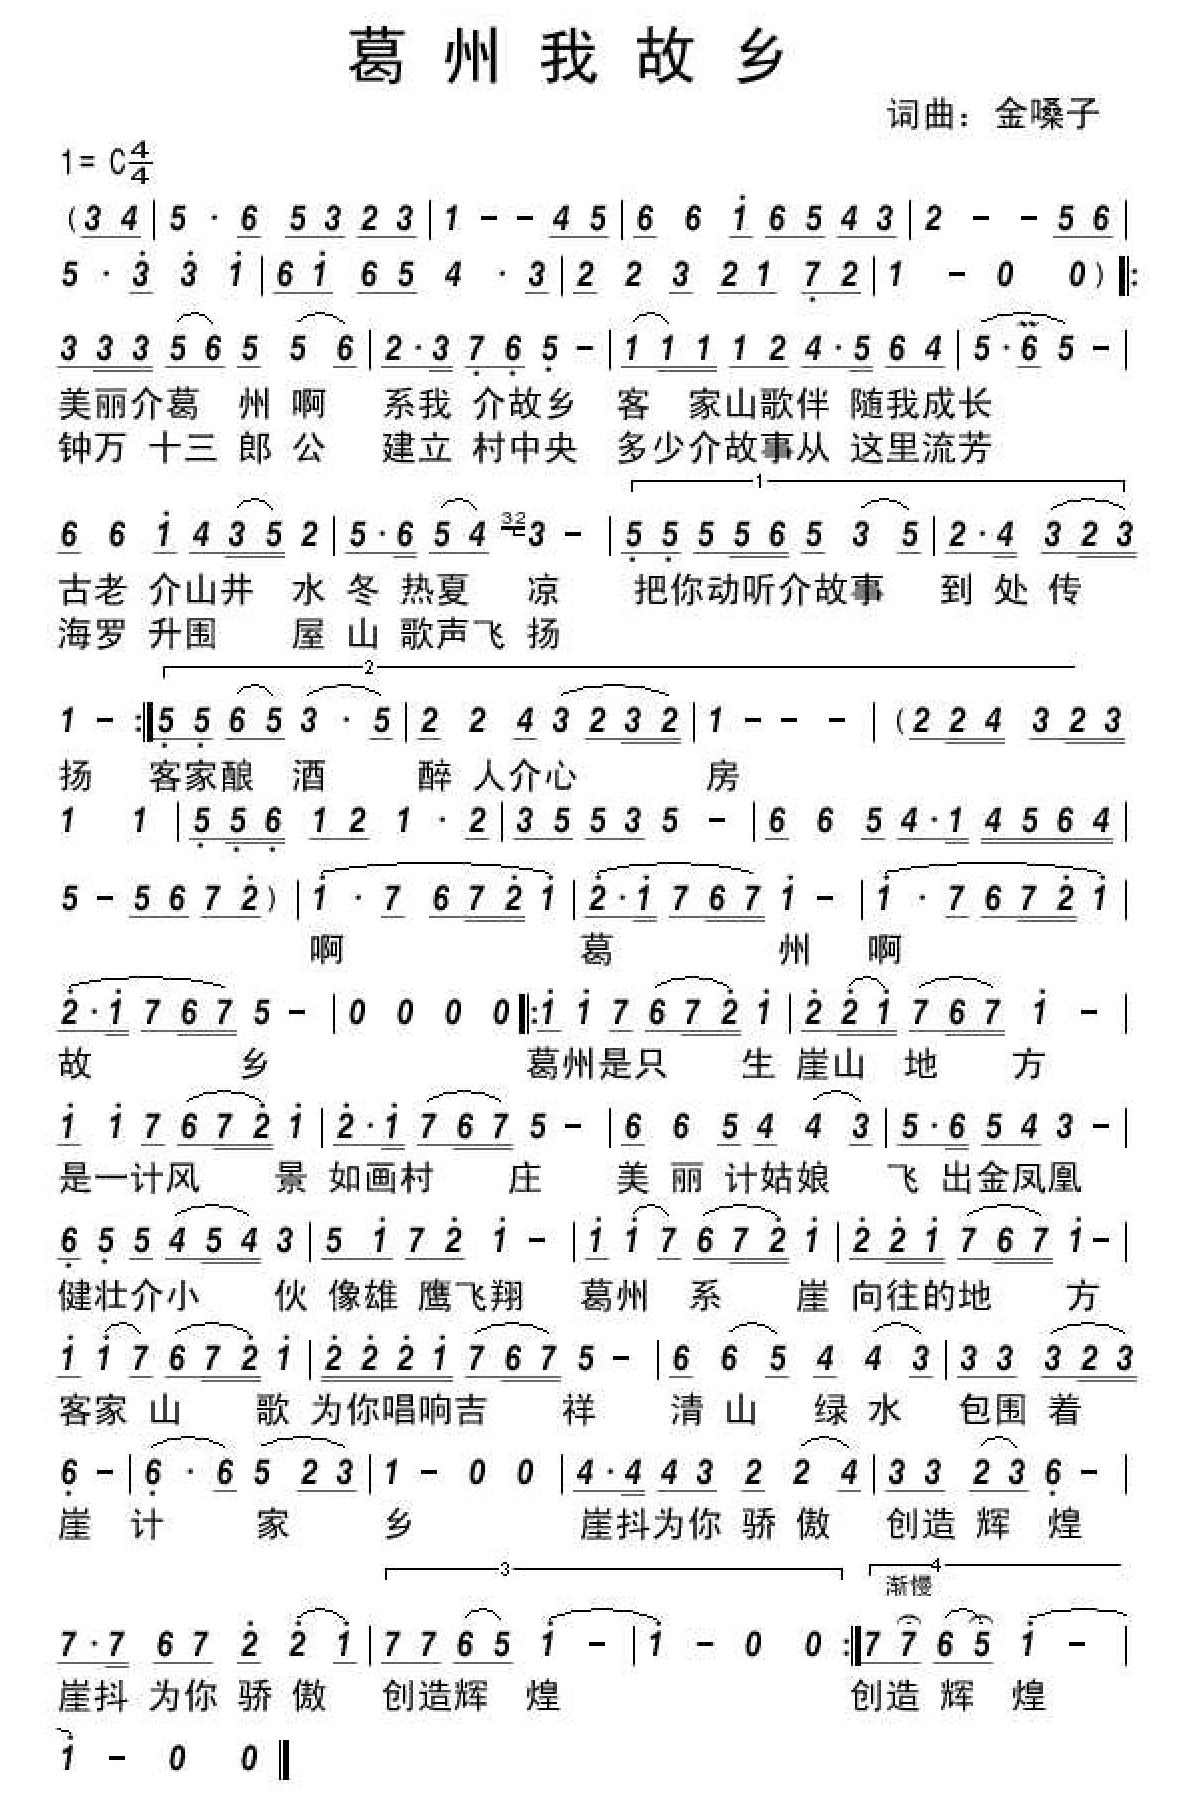 葛州我故乡
词曲：金嗓子
1= C 4/4
(3 4 | 5 · 6 5 3 2 3 | 1 - - 4 5 | 6 6 1 6 5 4 3 | 2 - - 5 6 |
5 · 3 3 1 | 6 1 6 5 4 · 3 | 2 2 3 2 1 7 2 | 1 - 0 0 ) ‖:
3 3 3 5 6 5 5 6 | 2 · 3 7 6 5 - | 1 1 1 1 2 4 · 5 6 4 | 5 · 6 5 - |
美丽介葛 州 啊 系我 介故乡 客 家山歌伴 随我成长
钟万 十三 郎 公 建立 村中央 多少介故事从 这里流芳
1
6 6 1 4 3 5 2 | 5 · 6 5 4 32 3 - | 5 5 5 5 6 5 3 5 | 2 · 4 3 2 3
古老 介山井 水 冬 热夏 凉 把你动听介故事 到 处 传
海罗 升围 屋 山 歌声飞 扬
2
1 - :‖ 5 5 6 5 3 · 5 | 2 2 4 3 2 3 2 | 1 - - - | (2 2 4 3 2 3
扬 客家酿 酒 醉 人介心 房
1 1 | 5 5 6 1 2 1 · 2 | 3 5 5 3 5 - | 6 6 5 4 · 1 4 5 6 4 |
5 - 5 6 7 2 ) | 1 · 7 6 7 2 1 | 2 · 1 7 6 7 1 - | 1 · 7 6 7 2 1 |
啊 葛 州 啊
2 · 1 7 6 7 5 - | 0 0 0 0 ‖: 1 1 7 6 7 2 1 | 2 2 1 7 6 7 1 - |
故 乡 葛州是只 生 崖山 地 方
1 1 7 6 7 2 1 | 2 · 1 7 6 7 5 - | 6 6 5 4 4 3 | 5 · 6 5 4 3 - |
是一计风 景 如画村 庄 美 丽 计姑娘 飞 出金凤凰
6 5 5 4 5 4 3 | 5 1 7 2 1 - | 1 1 7 6 7 2 1 | 2 2 1 7 6 7 1 - |
健壮介小 伙 像雄 鹰飞翔 葛州 系 崖 向往的地 方
1 1 7 6 7 2 1 | 2 2 2 1 7 6 7 5 - | 6 6 5 4 4 3 | 3 3 3 2 3
客家 山 歌 为你唱响吉 祥 清 山 绿 水 包围 着
6 - | 6 · 6 5 2 3 | 1 - 0 0 | 4 · 4 4 3 2 2 4 | 3 3 2 3 6 - |
崖 计 家 乡 崖抖为你 骄 傲 创造 辉 煌
3 4
渐慢
7 · 7 6 7 2 2 1 | 7 7 6 5 1 - | 1 - 0 0 :‖ 7 7 6 5 1 - |
崖抖 为你 骄 傲 创造辉 煌 创造 辉 煌
1 - 0 0 ‖